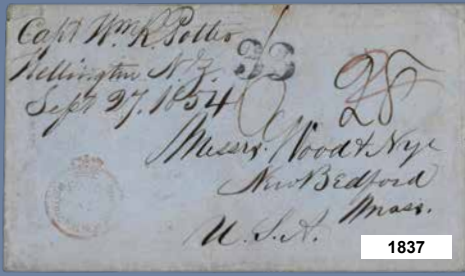 Capt Wm. R. Potter
Wellington N.Z.
Sept 27. 1854
33
28
Messrs. Wood & Nye
New Bedford
Mass.
U.S.A.
1837